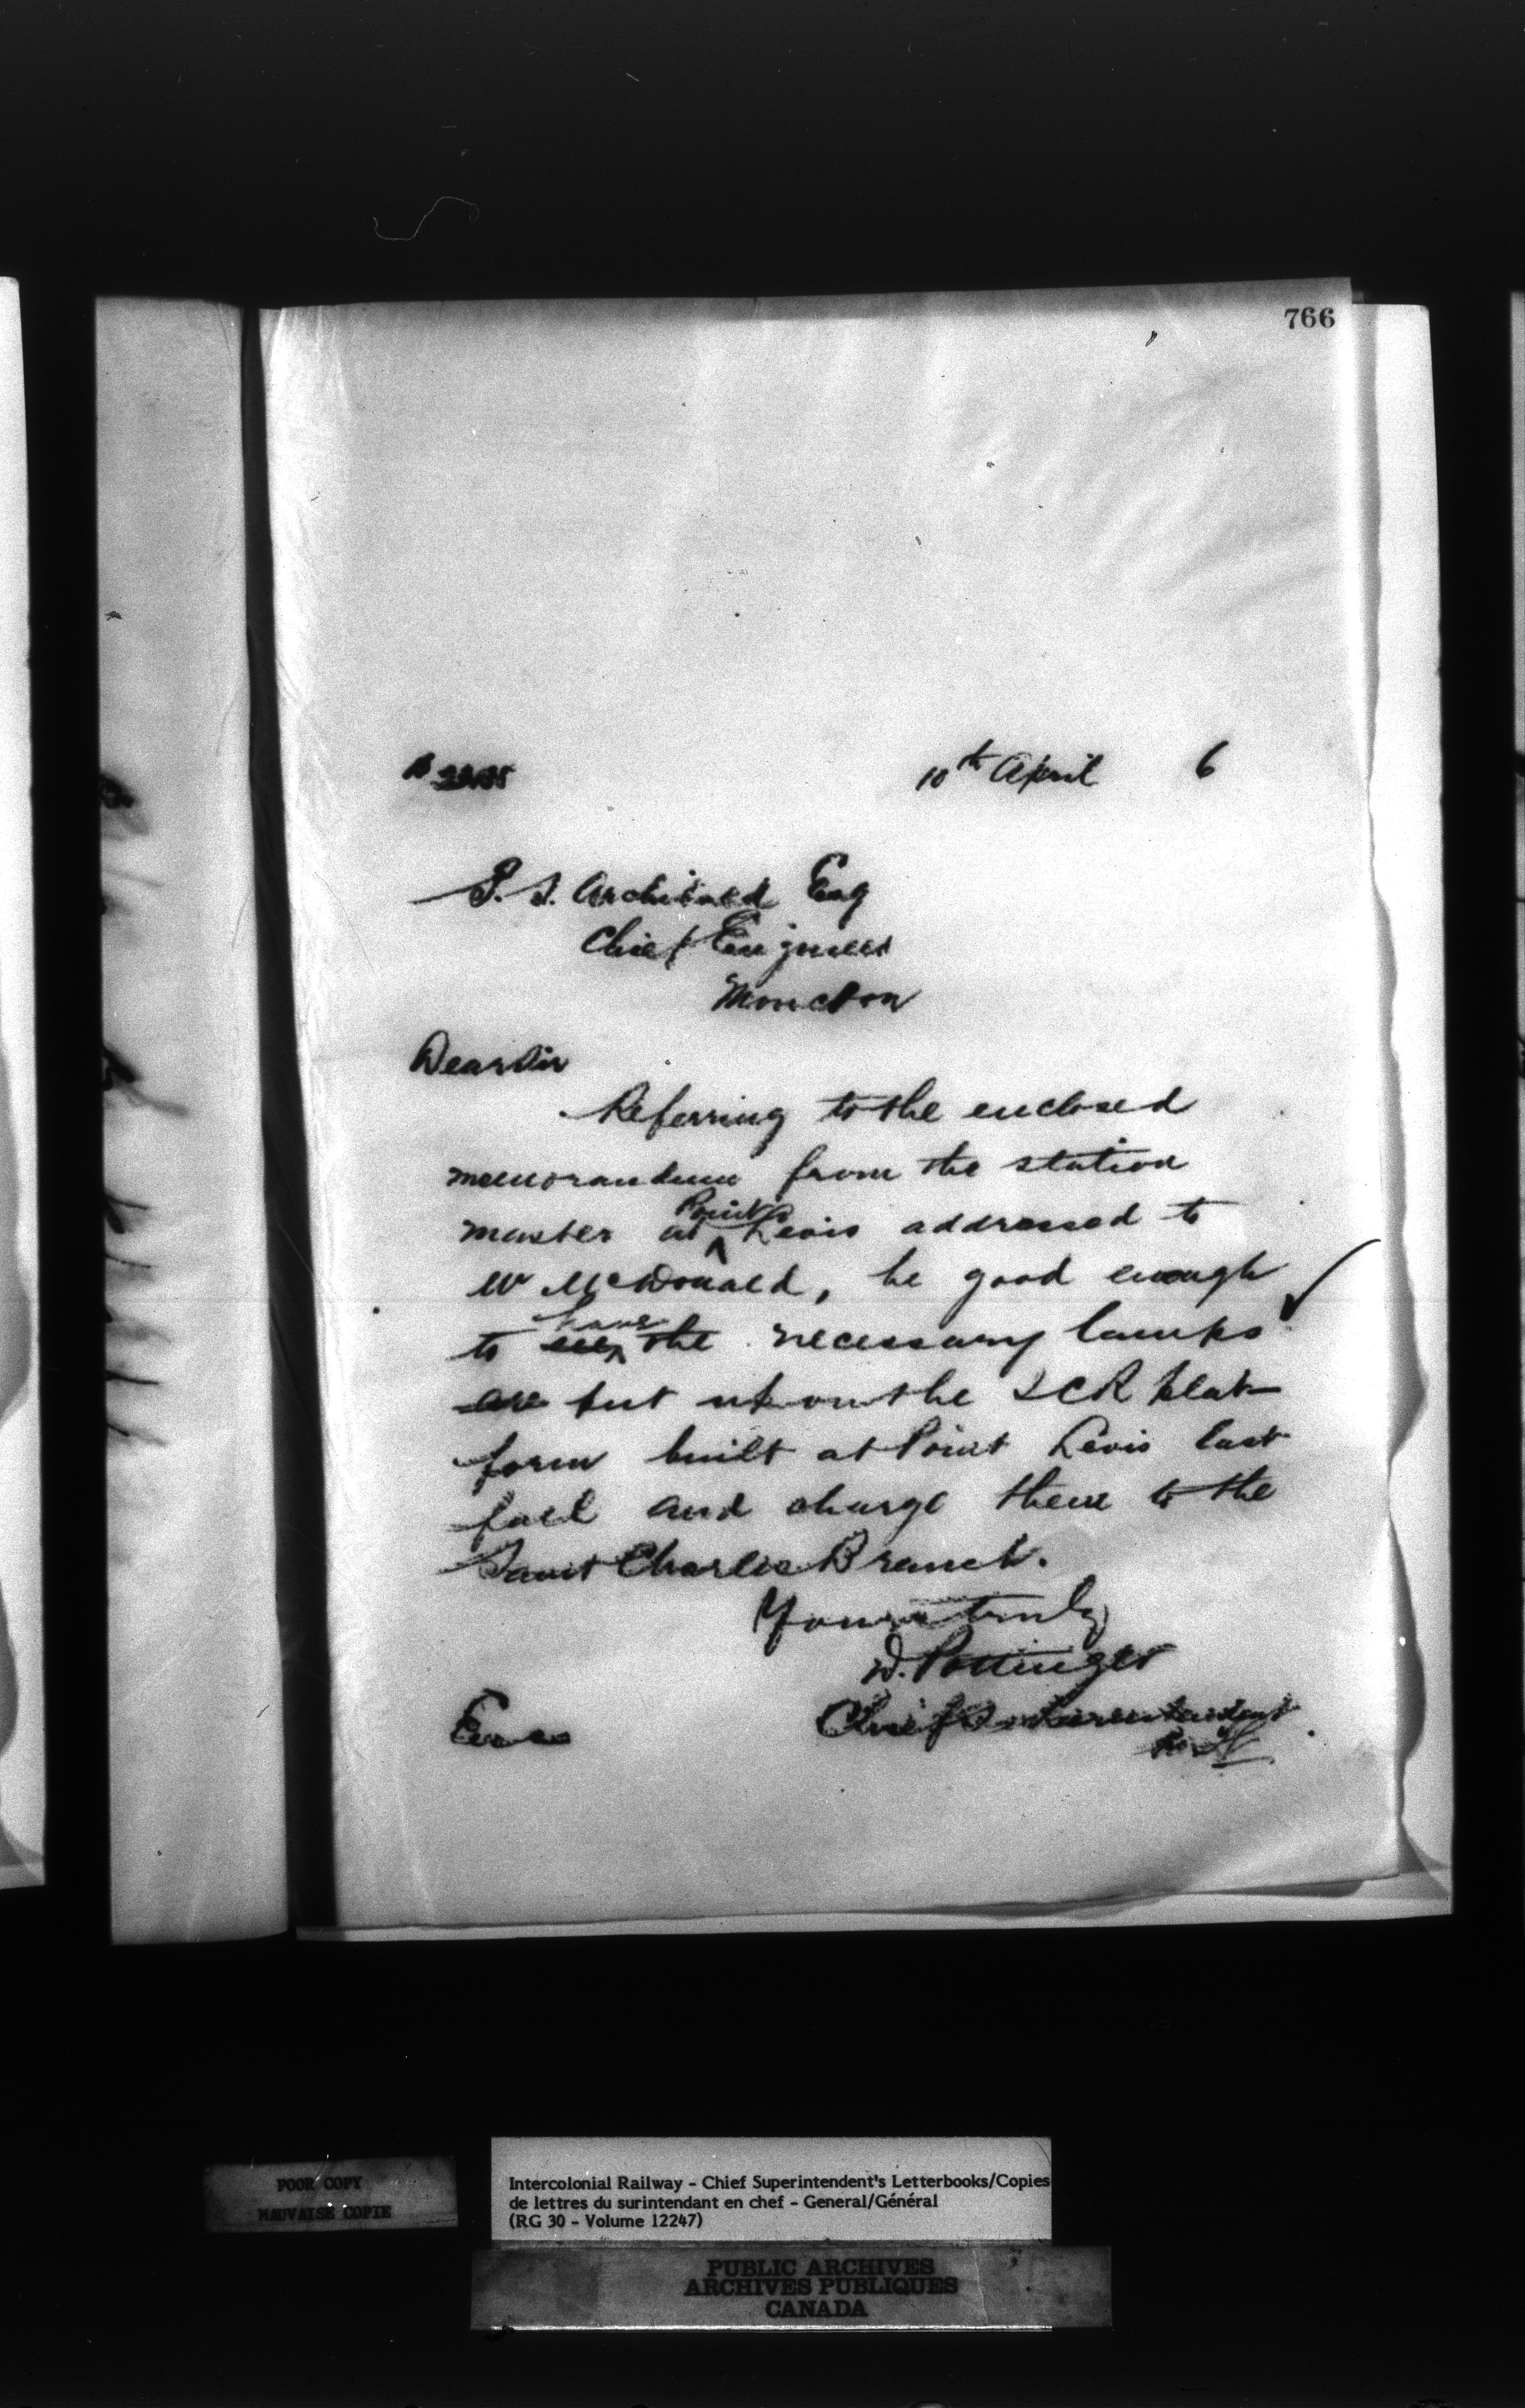 766
10th April 6
P. S. Archibald Esq
Chief Engineer
Moncton
Dear Sir
Referring to the enclosed
memorandum from the station
master at Point Levis addressed to
Mr McDonald, be good enough
to have the necessary lamps
put up on the ICR plat-
form built at Point Levis East
fall and charge them to the
Saint Charles Branch.
Yours truly
D. Pottinger
Chief Superintendent
Enc
POOR COPY
MAUVAISE COPIE
Intercolonial Railway - Chief Superintendent's Letterbooks/Copies
de lettres du surintendant en chef - General/Général
(RG 30 - Volume 12247)
PUBLIC ARCHIVES
ARCHIVES PUBLIQUES
CANADA